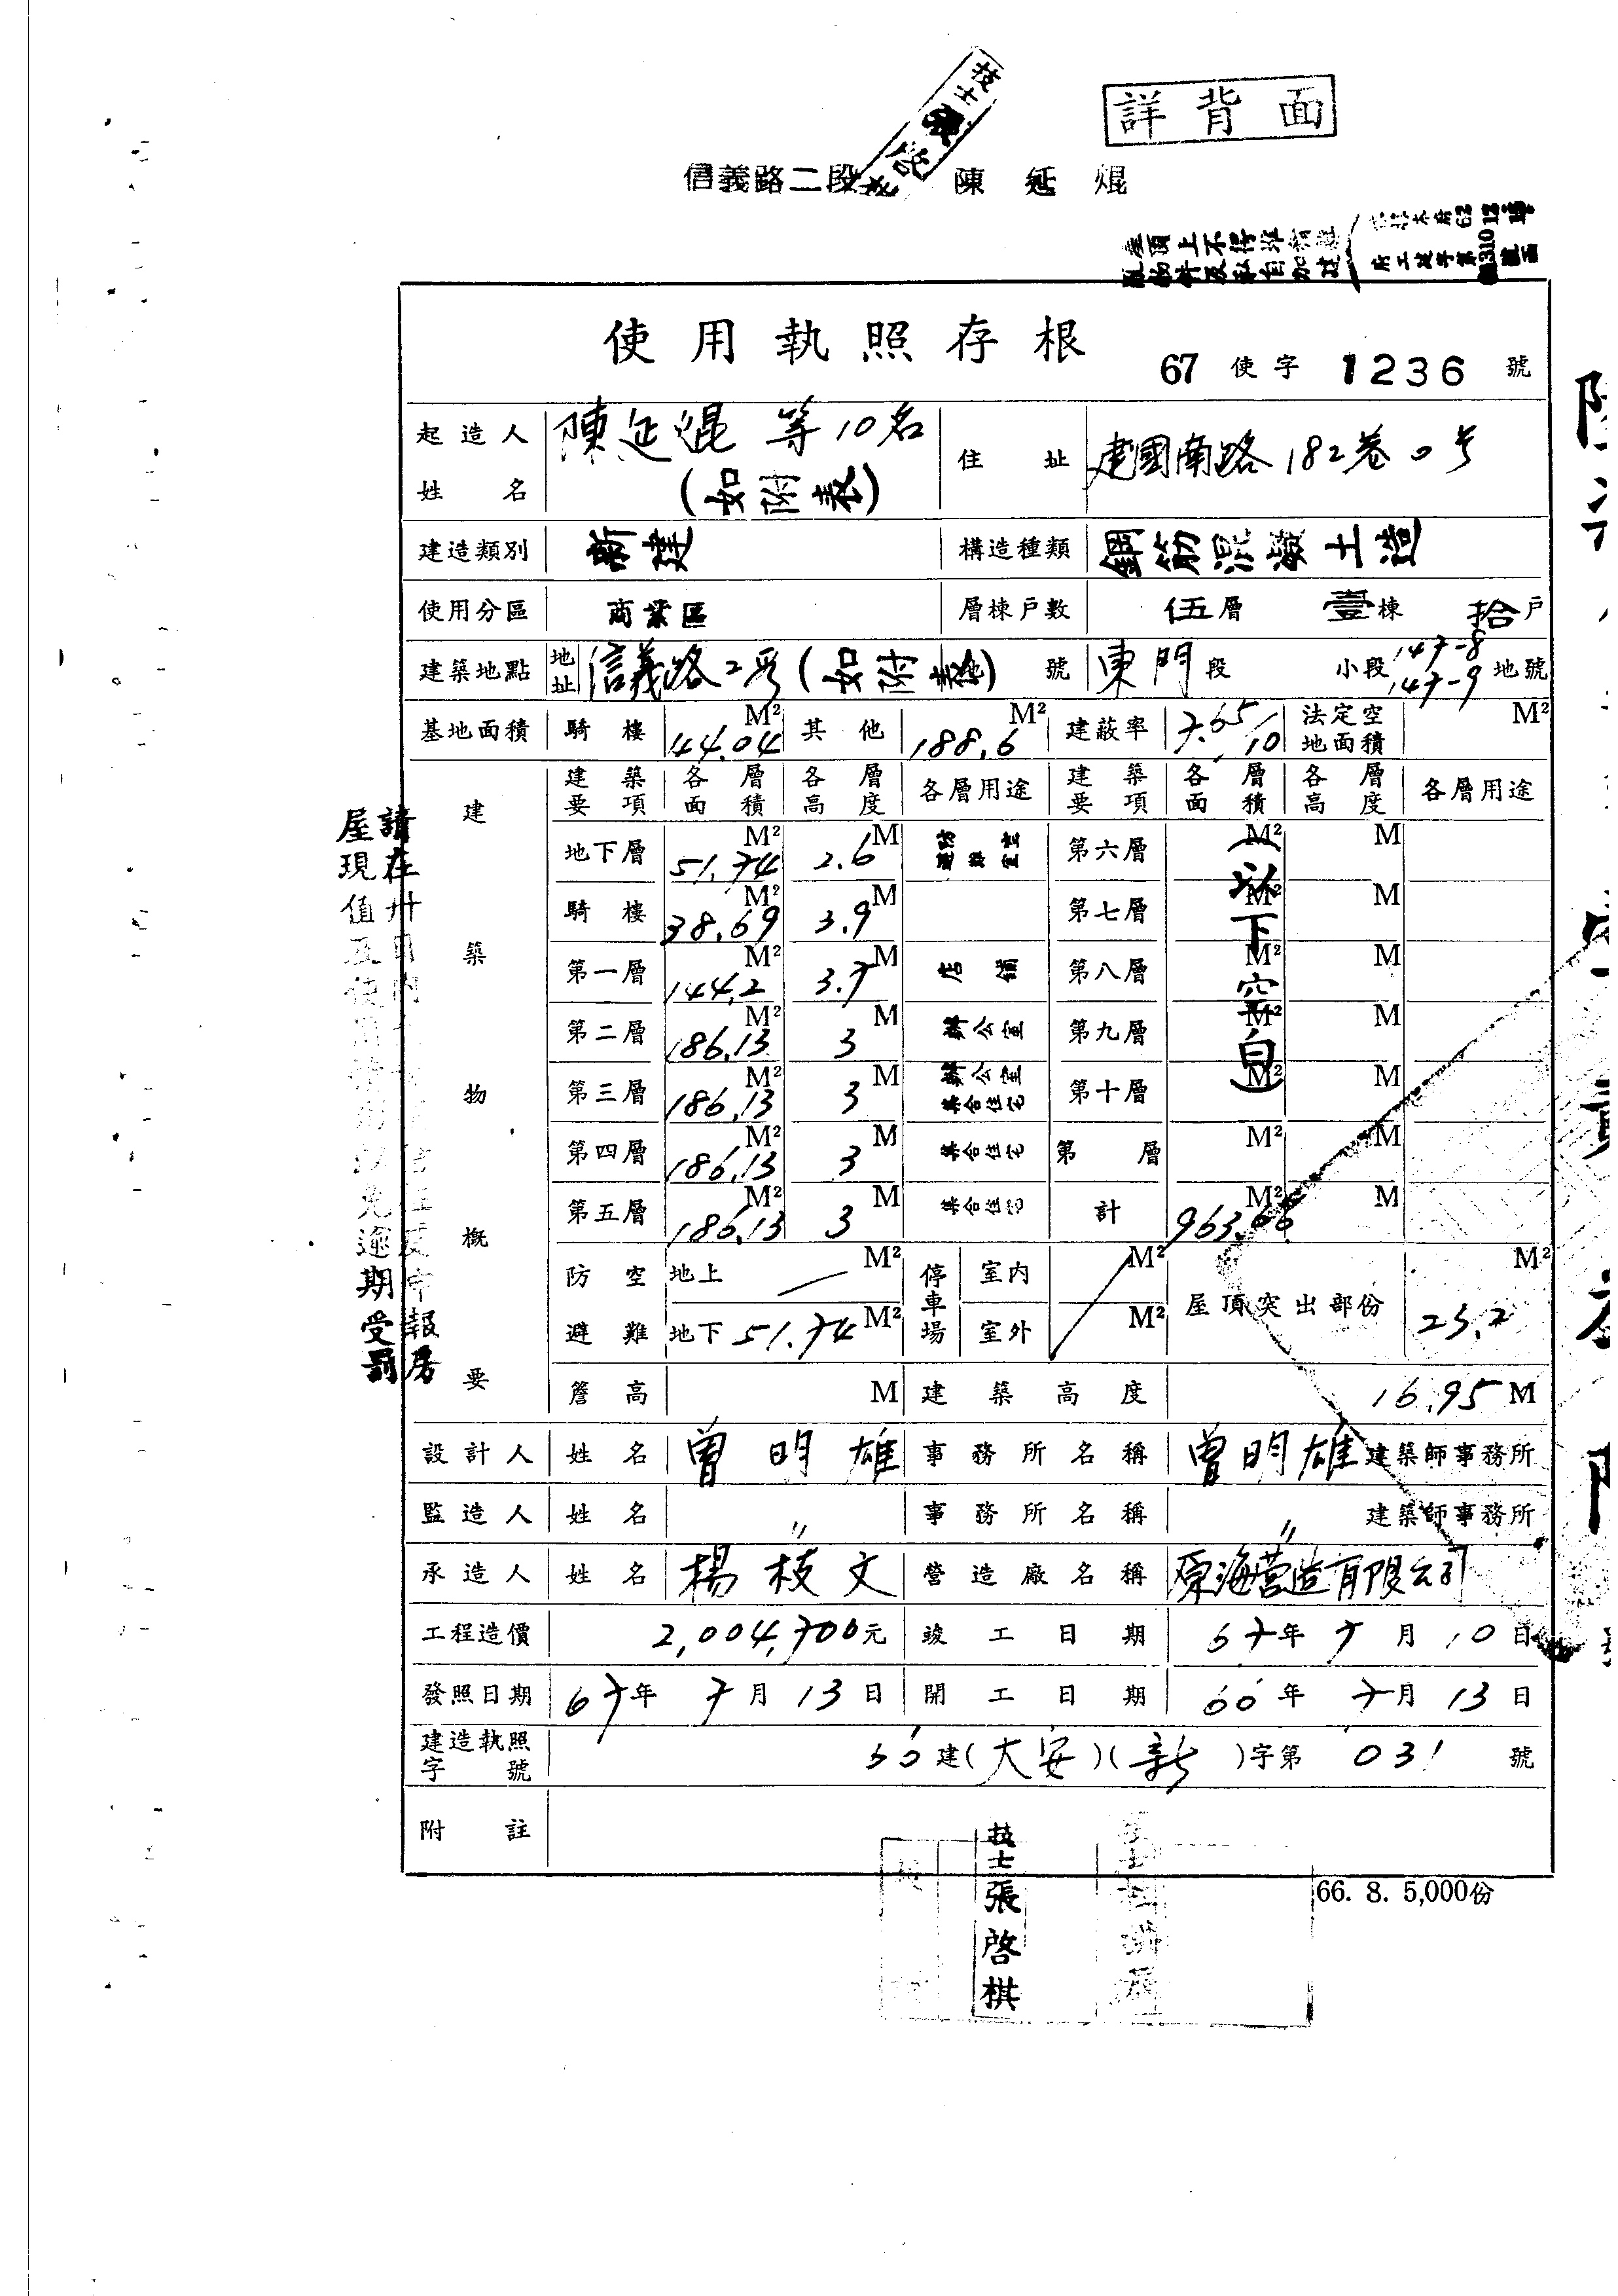 詳背面
信義路二段 陳延焜
使用執照存根
67 使字 1236 號
起造人姓名 陳延焜 等10名 (如附表) 住址 建國南路182巷0号
建造類別 新建 構造種類 鋼筋混凝土造
使用分區 商業區 層棟戶數 伍層 壹棟 拾戶
建築地點 地址 信義路2段(如附表) 號 東門段 小段 147-8 147-9 地號
基地面積 騎樓 44.04 M² 其他 188.6 M² 建蔽率 7.65/10 法定空地面積 M²
建築物概要
建築要項 各層面積 各層高度 各層用途 建築要項 各層面積 各層高度 各層用途
地下層 51.74 M² 2.6 M 第六層 M² M
騎樓 38.69 M² 3.9 M 第七層 M² M
第一層 144.2 M² 3.7 M 店鋪 第八層 M² M
第二層 186.13 M² 3 M 辦公室 第九層 M² M
第三層 186.13 M² 3 M 辦公室 集合住宅 第十層 M² M
第四層 186.13 M² 3 M 集合住宅 第 層 M² M
第五層 186.13 M² 3 M 集合住宅 計 963.66 M² M
(以下空白)
防空避難 地上 M² 地下 51.74 M² 停車場 室內 M² 室外 M² 屋頂突出部份 23.2 M²
簷高 M 建築高度 16.95 M
設計人 姓名 曾明雄 事務所名稱 曾明雄建築師事務所
監造人 姓名 〃 事務所名稱 〃 建築師事務所
承造人 姓名 楊枝文 營造廠名稱 東海營造有限公司
工程造價 2,004,700元 竣工日期 67年7月10日
發照日期 67年7月13日 開工日期 66年7月13日
建造執照字號 66建(大安)(新)字第031號
附註
66. 8. 5,000份
技士張啓棋